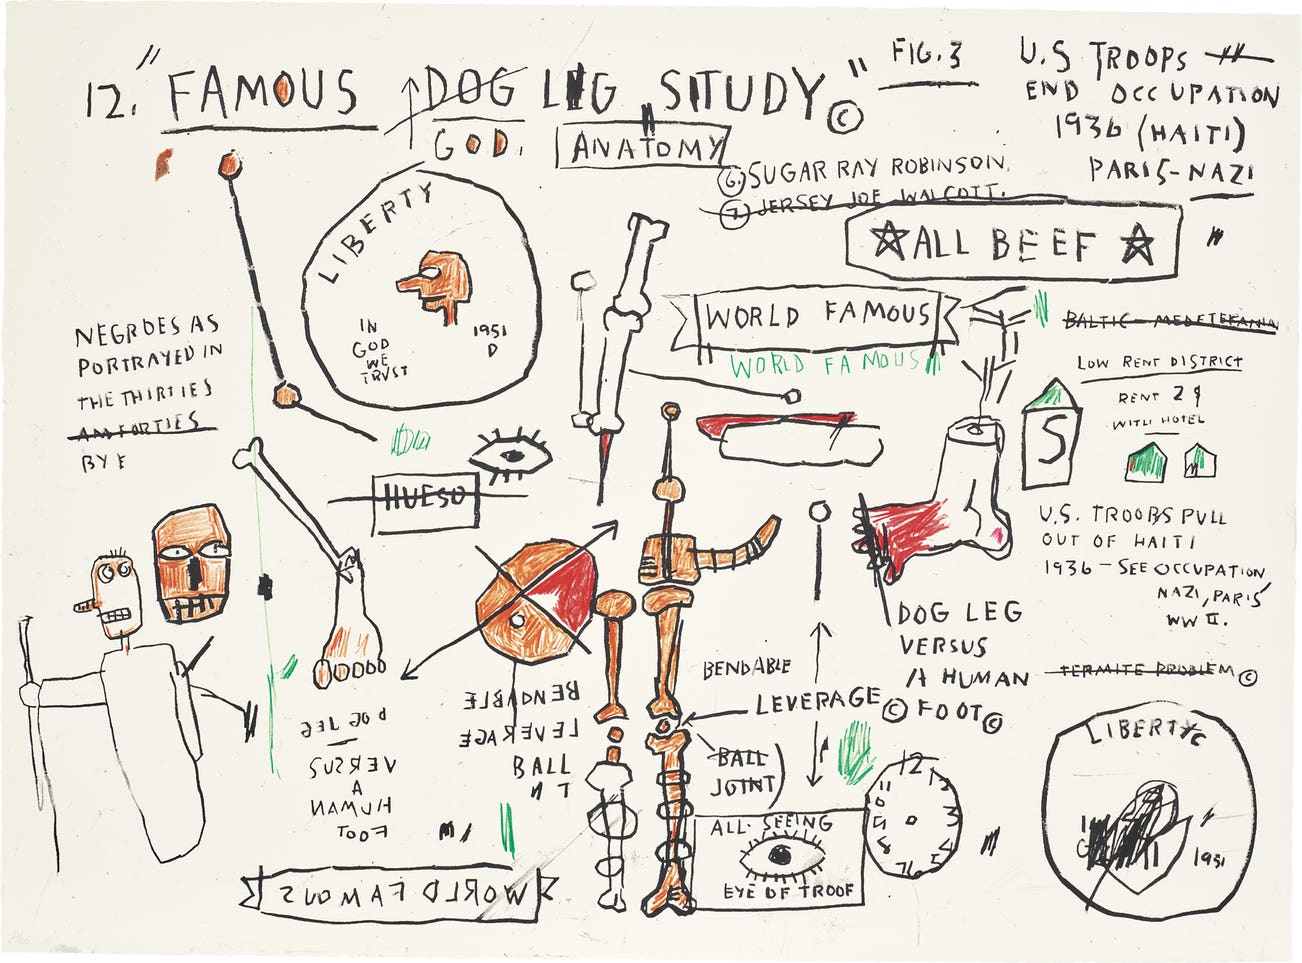 12. "FAMOUS DOG LEG STUDY" ©
GOD.
ANATOMY
FIG. 3
U.S TROOPS
END OCCUPATION
1936 (HAITI)
PARIS-NAZI
6. SUGAR RAY ROBINSON.
7. JERSEY JOE WALCOTT.
ALL BEEF
LIBERTY
IN
GOD
WE
TRVST
1951
D
WORLD FAMOUS
WORLD FAMOUS
LOW RENT DISTRICT
RENT 2
WITH HOTEL
S
NEGROES AS
PORTRAYED IN
THE THIRTIES
BYE
HUESO
U.S. TROOPS PULL
OUT OF HAITI
1936 - SEE OCCUPATION
NAZI, PARIS
WW II.
DOG LEG
VERSUS
A HUMAN
FOOT©
TERMITE PROBLEM ©
BENDABLE
LEVERAGE ©
BALL
JOINT
BENDABLE
LEVERAGE
BALL
DOG LEG
VERSUS
A
HUMAN
FOOT
WORLD FAMOUS
ALL-SEEING
EYE OF TROOF
12
LIBERTY
1951